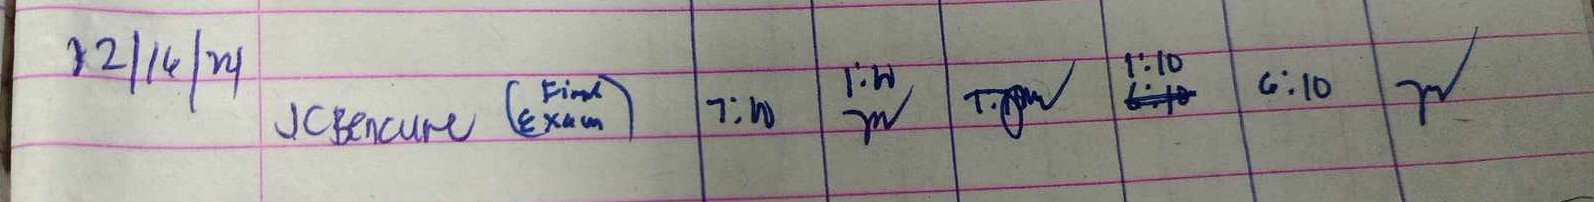 12/16/24
JCBencure (Final Exam) 7:10 1:10 1:10 6:10